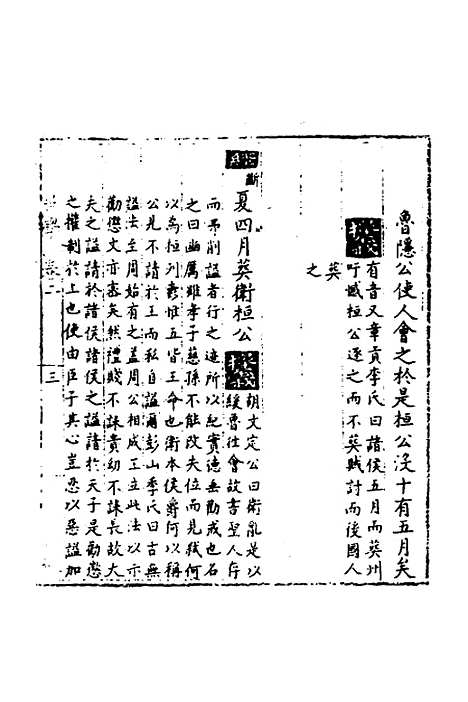 魯隱公使人會之於是桓公沒十有五月矣
有音又章貢李氏曰諸侯五月而葬州
吁弒桓公逐之而不葬賊討而後國人
葬
之
夏四月葬衛桓公
胡文定公曰衛亂是以
緩魯往會故書聖人存
而弗削謚者行之迹所以紀實德垂勸戒也名
之曰幽厲雖孝子慈孫不能改失位而見弒何
以為桓列爵惟五皆王命也衛本侯爵何以稱
公見不請於王而私自謚爾彭山季氏曰古無
謚法至周始有之盖周公相成王立此法以示
勸懲文亦審矣然禮賤不誄貴幼不誄長故大
夫之謚請於諸侯諸侯之謚請於天子是勸懲
之權制於上也使由臣子其心豈忍以惡謚加
三